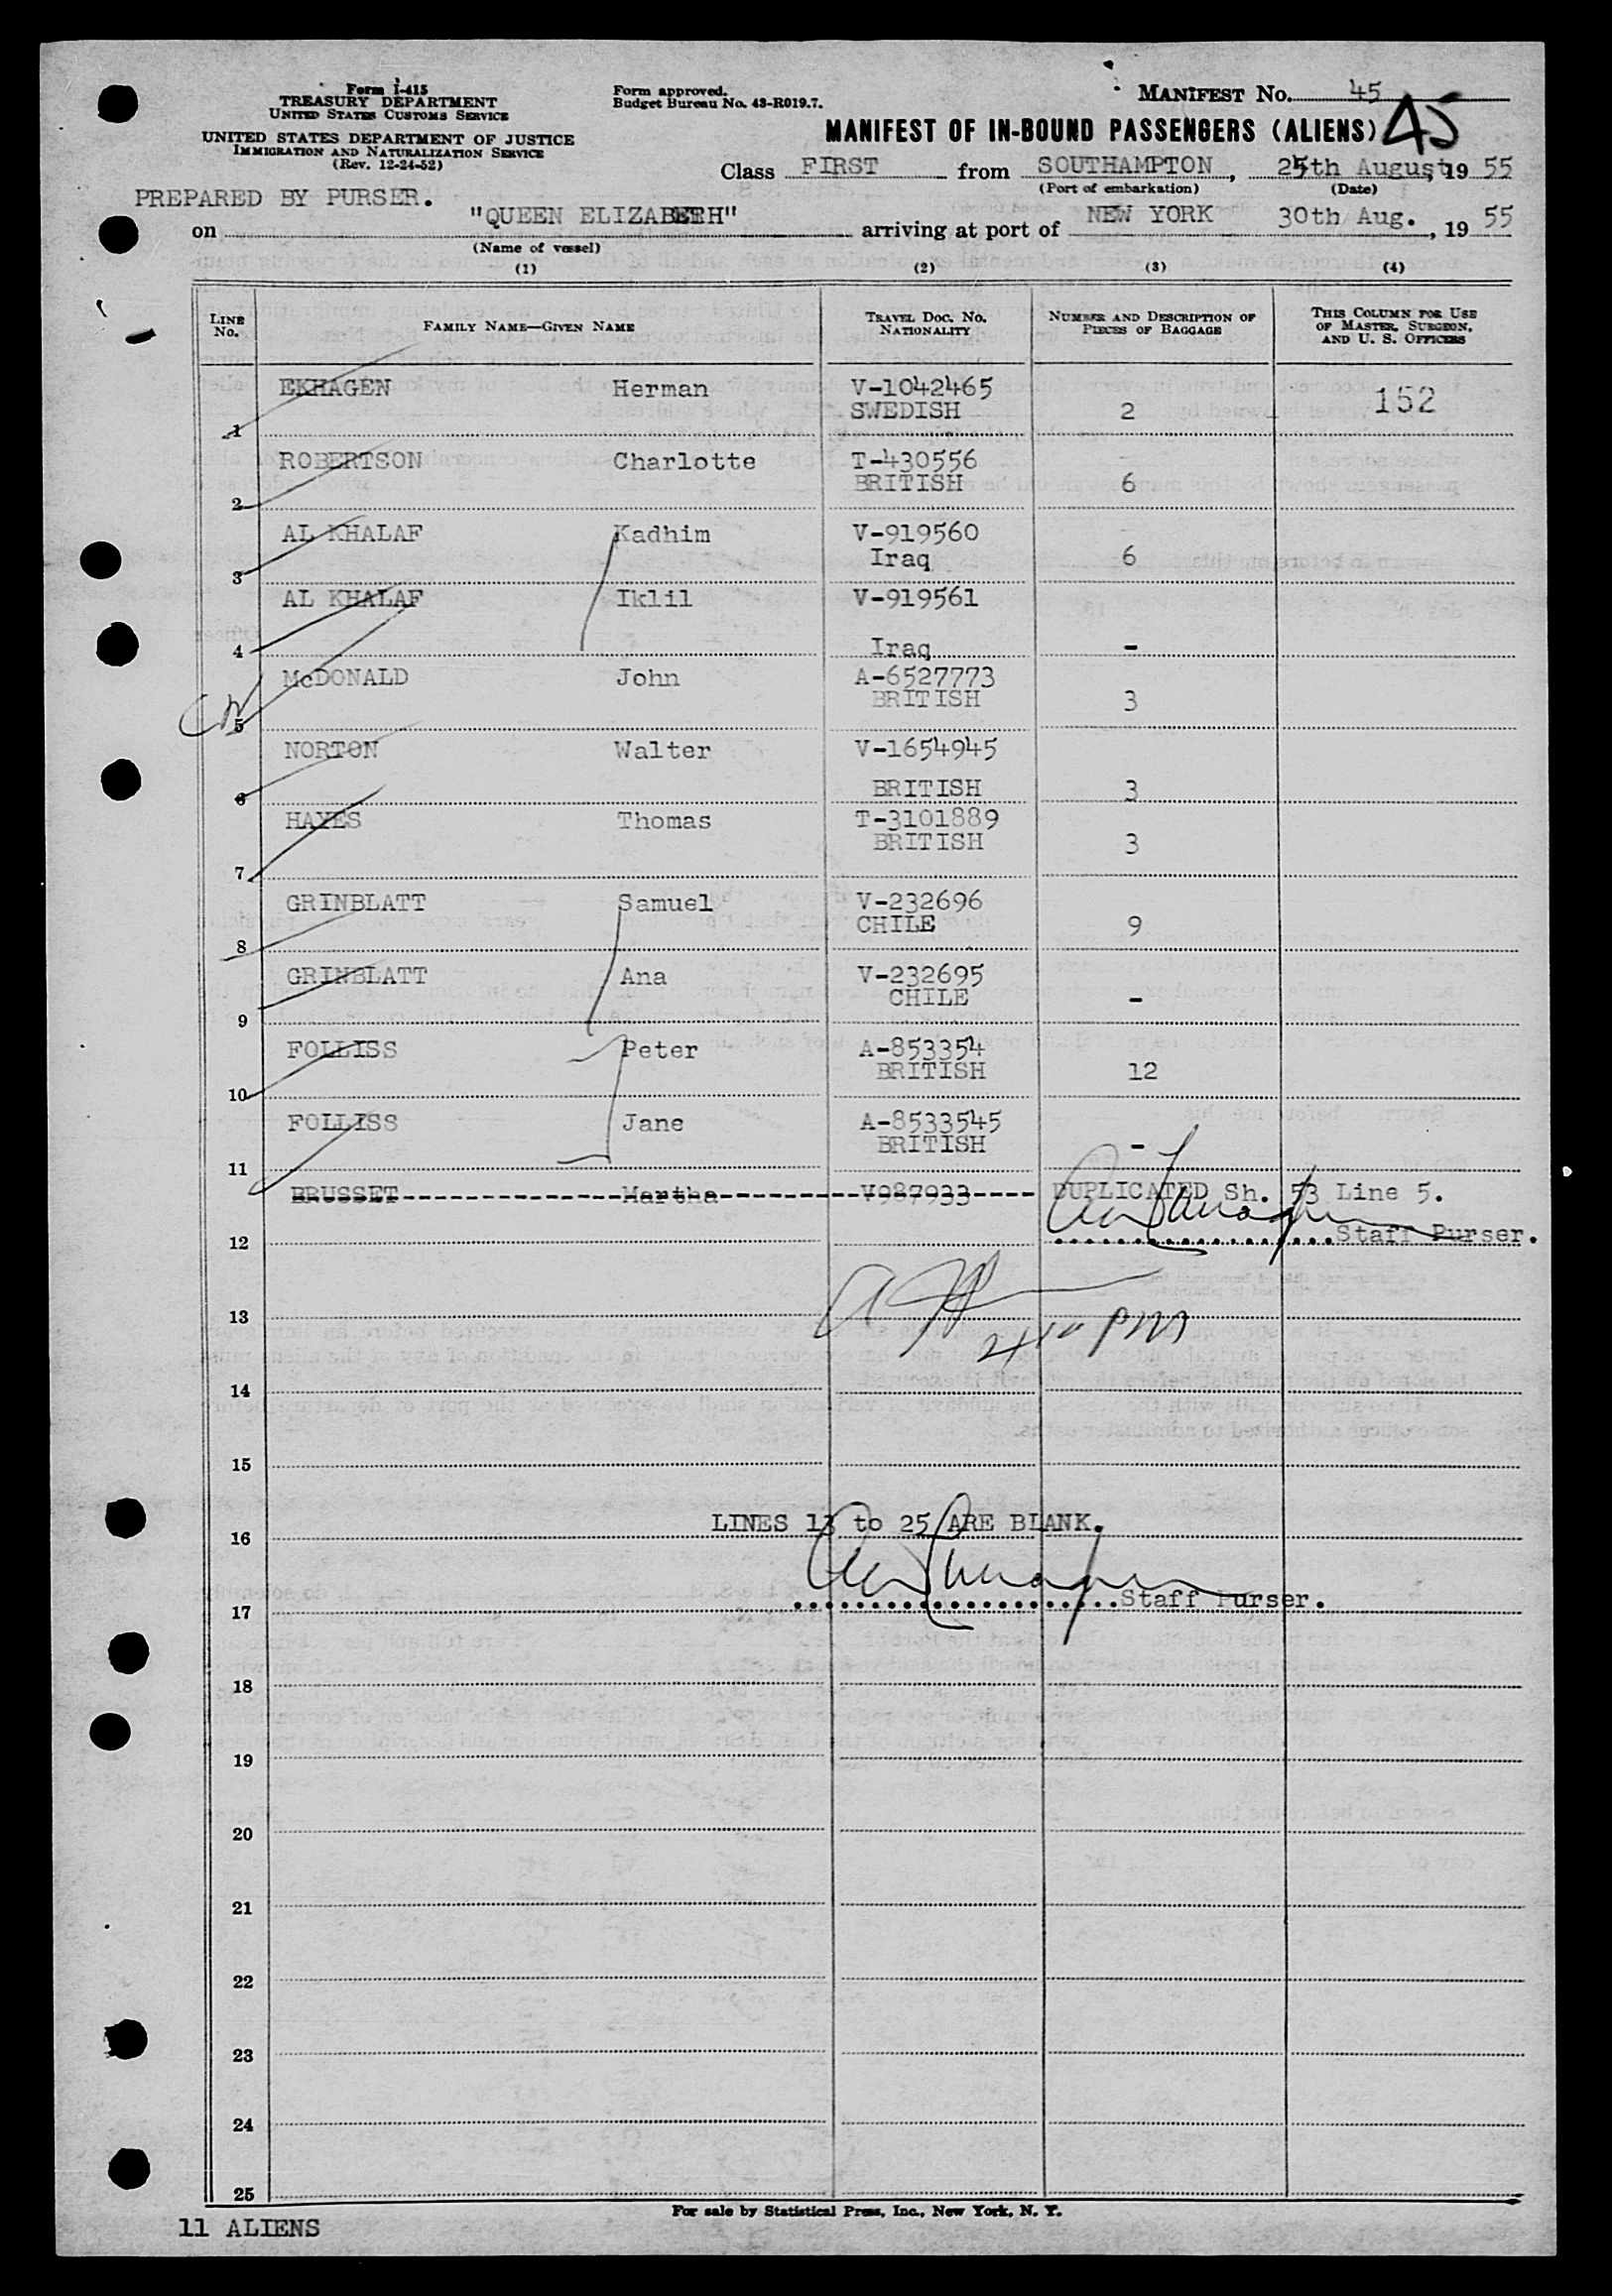 Form I-415
TREASURY DEPARTMENT
UNITED STATES CUSTOMS SERVICE
UNITED STATES DEPARTMENT OF JUSTICE
IMMIGRATION AND NATURALIZATION SERVICE
(Rev. 12-24-52)
Form approved.
Budget Bureau No. 43-R019.7.
MANIFEST No. 45
MANIFEST OF IN-BOUND PASSENGERS (ALIENS) 45
Class FIRST from SOUTHAMPTON, 25th August, 19 55
(Port of embarkation) (Date)
PREPARED BY PURSER.
on "QUEEN ELIZABETH" arriving at port of NEW YORK 30th Aug., 19 55
(Name of vessel)
(1) (2) (3) (4)
LINE No. FAMILY NAME—GIVEN NAME TRAVEL DOC. No. NATIONALITY NUMBER AND DESCRIPTION OF PIECES OF BAGGAGE THIS COLUMN FOR USE OF MASTER, SURGEON, AND U. S. OFFICERS
EKHAGEN Herman V-1042465 152
1 SWEDISH 2
ROBERTSON Charlotte T-430556
2 BRITISH 6
AL KHALAF Kadhim V-919560
3 Iraq 6
AL KHALAF Iklil V-919561
4 Iraq -
McDONALD John A-6527773
5 BRITISH 3
NORTON Walter V-1654945
6 BRITISH 3
HAYES Thomas T-3101889
7 BRITISH 3
GRINBLATT Samuel V-232696
8 CHILE 9
GRINBLATT Ana V-232695
9 CHILE -
FOLLISS Peter A-853354
10 BRITISH 12
FOLLISS Jane A-8533545
11 BRITISH -
BRUSSET Martha V987933 DUPLICATED Sh. 53 Line 5.
12 Staff Purser.
13
PM
14
15
16 LINES 13 to 25 ARE BLANK.
17 Staff Purser.
18
19
20
21
22
23
24
25
For sale by Statistical Press, Inc., New York, N. Y.
11 ALIENS